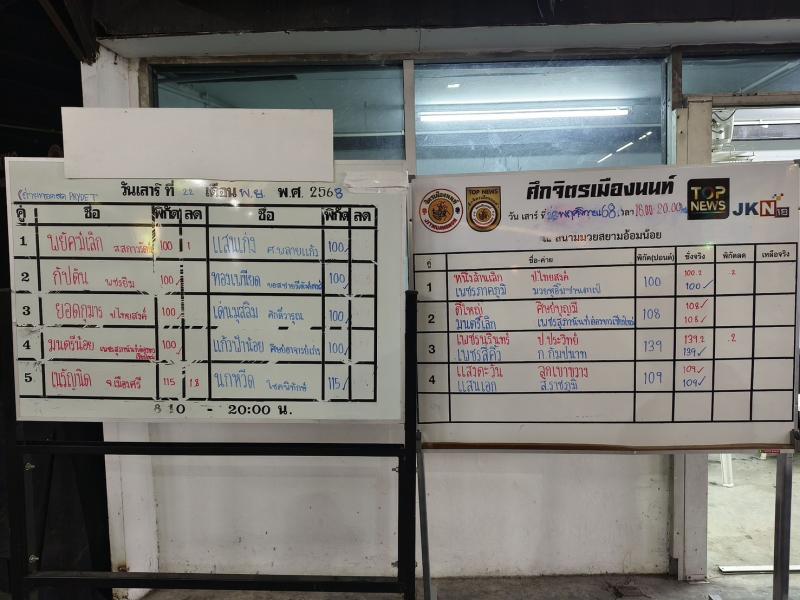 วันเสาร์ ที่ 22 เดือน พ.ย. พ.ศ. 2568
คู่ ชื่อ พิกัด ลด ชื่อ พิกัด ลด
1 พยัคฆ์เล็ก 100 1 แสนเก่ง ศ.พลายแก้ว 100
2 กัปตัน เพชรยิม 100 ทองเนียด 100
3 ยอดกุมาร ป.ไทยสงค์ 100 เด่นมุสลิม ศักดิ์วารุณ 100
4 มนตรีน้อย 100 แก้วฟ้าน้อย ศิษย์อาจารย์เก่ง 100
5 เหรัญนิด จ.เมืองศรี 115 1.8 นกหวีด โชคพิทักษ์ 115
20:00 น.
ศึกจิตรเมืองนนท์
TOP NEWS
TOP NEWS
JKN18
วัน เสาร์ ที่ 22 พฤศจิกายน 68 เวลา 18.00-20.00
ณ สนามมวยสยามอ้อมน้อย
คู่ ชื่อ-ค่าย พิกัด(ปอนด์) ชั่งจริง พิกัดลด เหลือจริง
1 หนึ่งล้านเล็ก ป.ไทยสงค์ 100 100.2 .2
เพชรภาคภูมิ 100
2 ตี๋ใหญ่ ศิษย์บุญมี 108 108
มนตรีเล็ก 108
3 เพชรนรินทร์ ป.ประวิทย์ 139 139.2 .2
เพชรสีคิ้ว ก.กัมปนาท 139
4 แสงตะวัน ลูกเขาขวาง 109 109
แสนเอก ส.ราชภูมิ 109